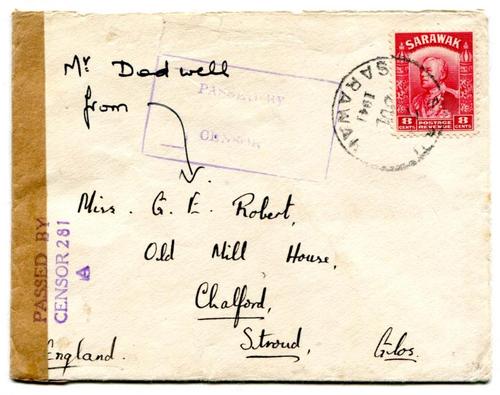 Mr Dodwell
from
PASSED BY
CENSOR
SARAWAK
8 CENTS
POSTAGE
REVENUE
8 CENTS
SARAWAK
1941
Miss. G. E. Robert,
Old Mill House,
Chalford,
Stroud, Glos.
England.
PASSED BY
CENSOR 281
A